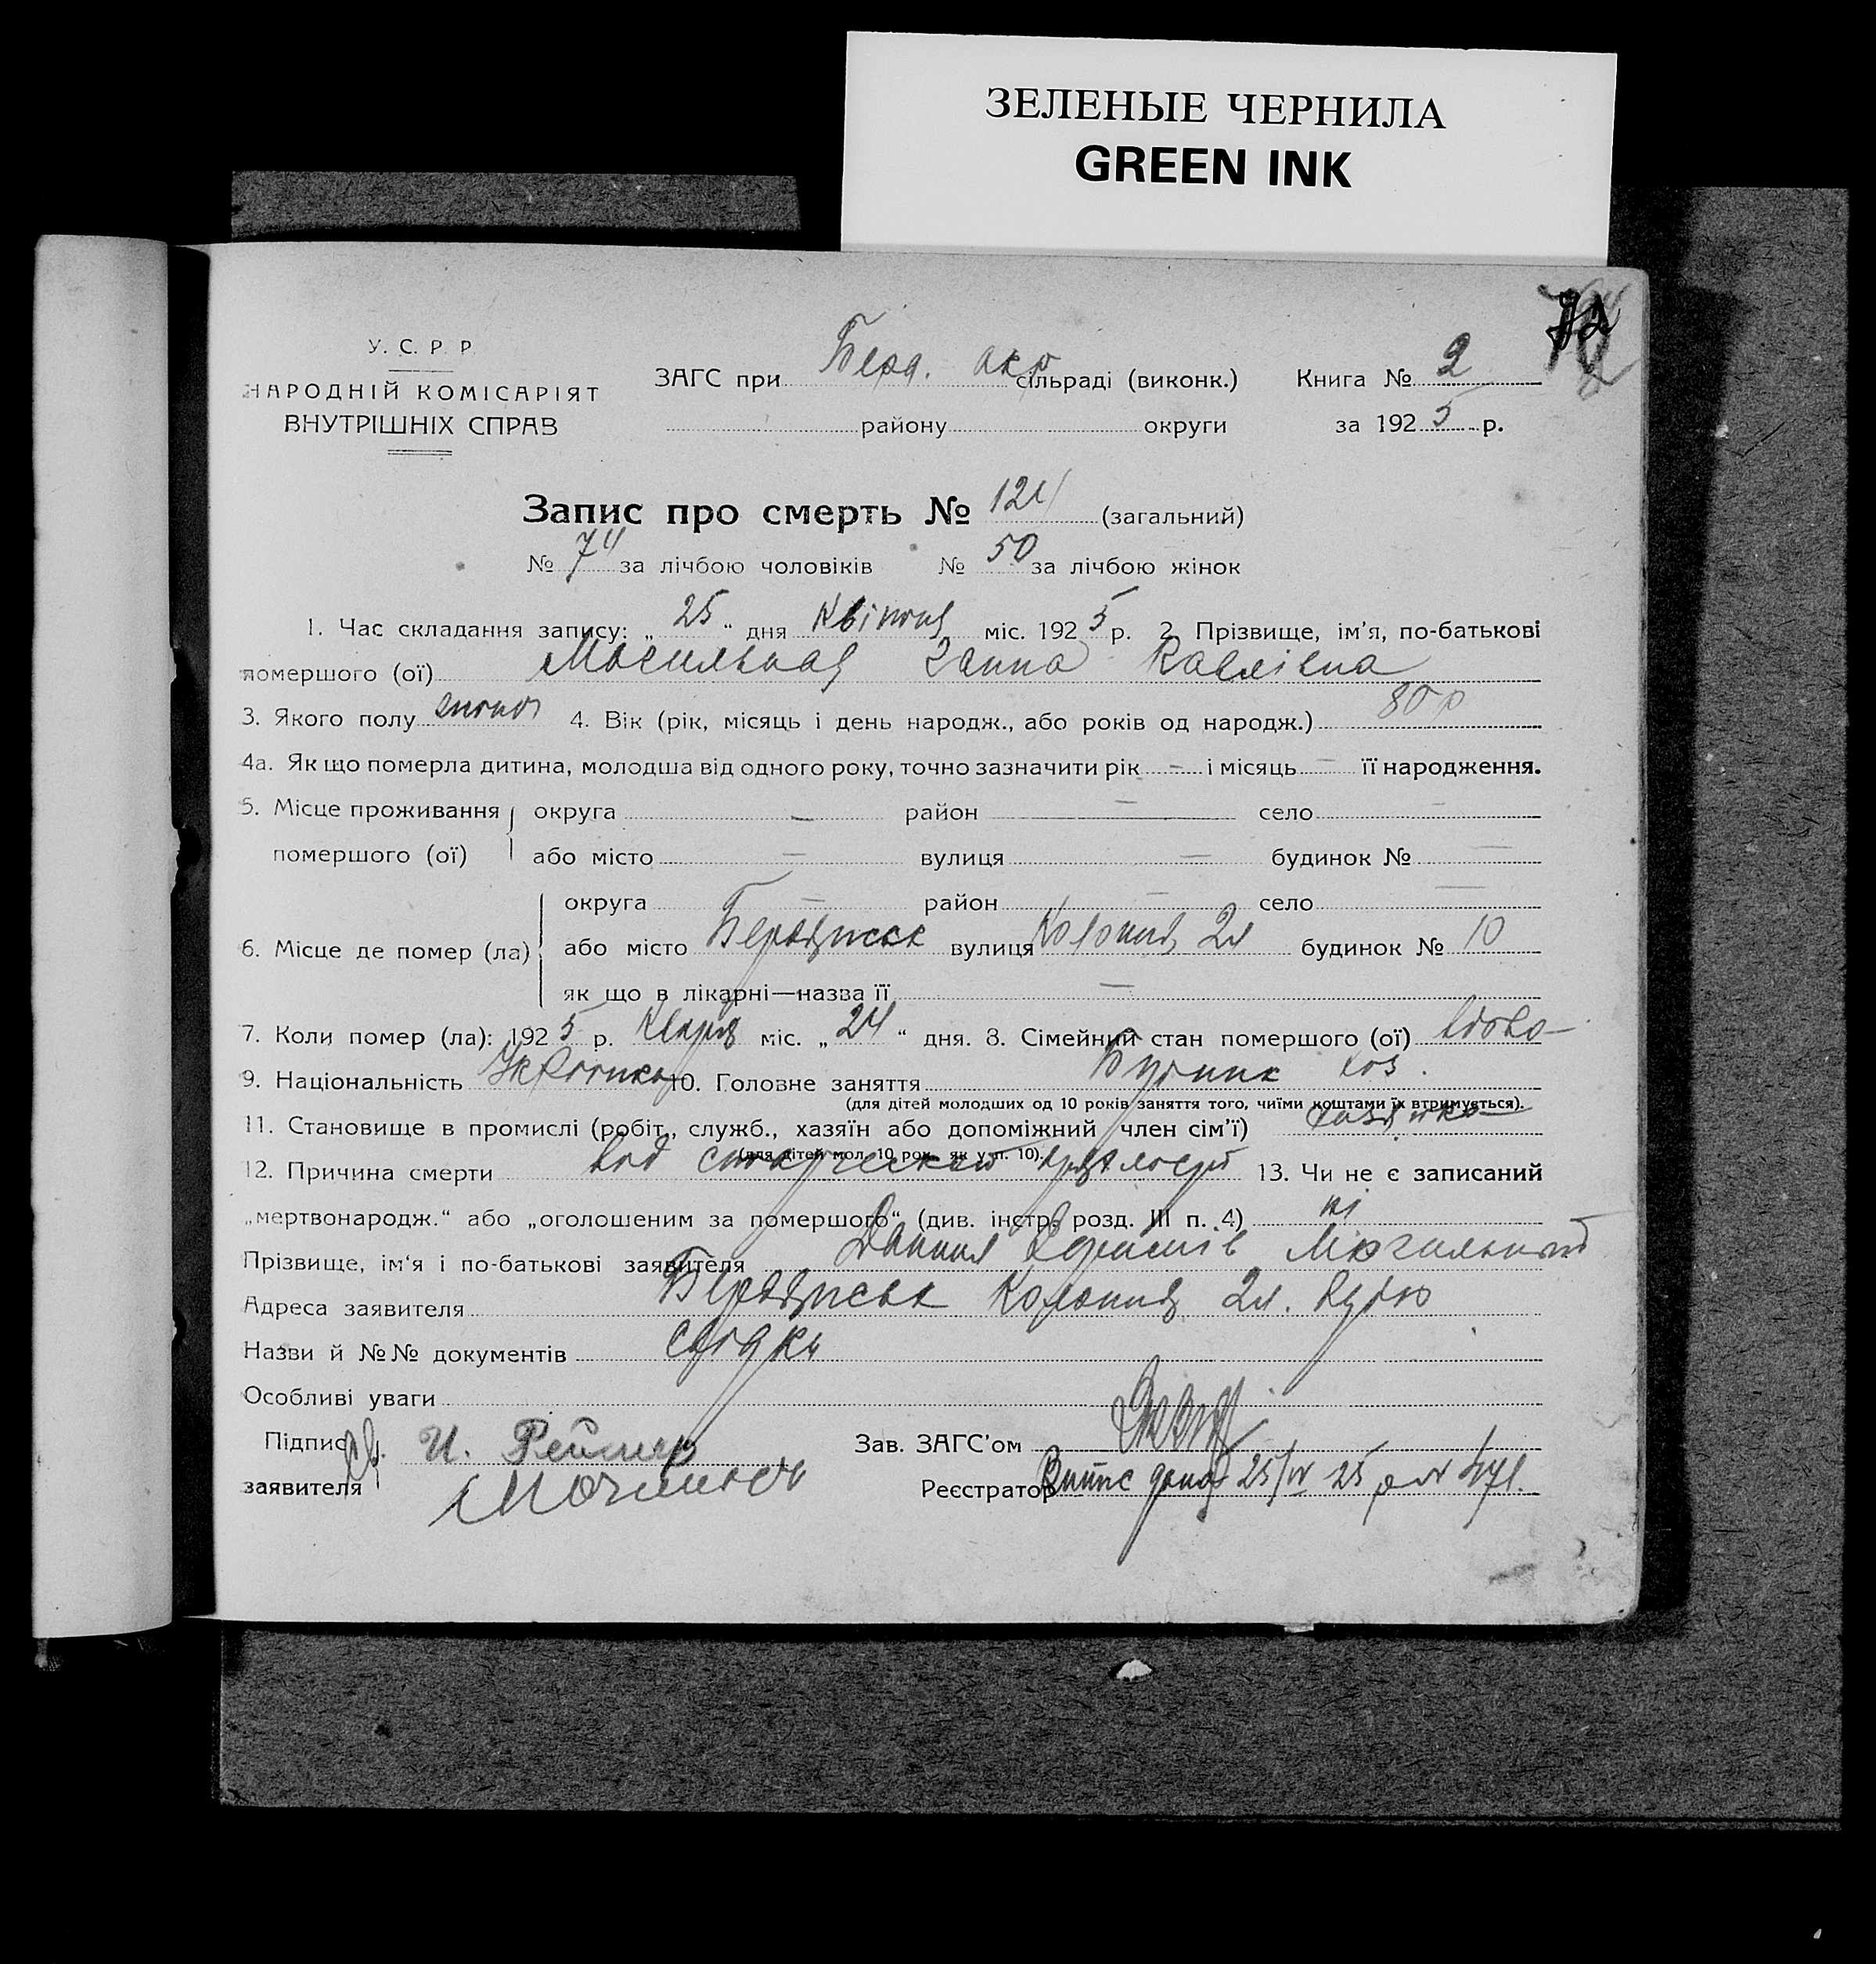 ЗЕЛЕНЫЕ ЧЕРНИЛА
GREEN INK
72
У. С. Р. Р.
НАРОДНІЙ КОМІСАРІЯТ
ВНУТРІШНІХ СПРАВ
ЗАГС при Берд. окр сільраді (виконк.) Книга № 2
району округи за 1925 р.
Запис про смерть № 124 (загальний)
№ 74 за лічбою чоловіків № 50 за лічбою жінок
1. Час складання запису: „ 25 “ дня Квітня міс. 1925 р. 2. Прізвище, ім’я, по-батькові
помершого (ої) Могильная Ганна Павлівна
3. Якого полу жіноч 4. Вік (рік, місяць і день народж., або років од народж.) 80 р
4а. Як що померла дитина, молодша від одного року, точно зазначити рік — і місяць — її народження.
5. Місце проживання округа — район — село —
помершого (ої) або місто — вулиця — будинок № —
округа — район — село —
6. Місце де помер (ла) або місто Бердянськ вулиця Колонія 2л будинок № 10
як що в лікарні—назва її —
7. Коли помер (ла): 1925 р. міс. „ 24 “ дня. 8. Сімейний стан помершого (ої) вдова
9. Національність Українка 10. Головне заняття хоз.
(для дітей молодших од 10 років заняття того, чиїми коштами їх втримується).
11. Становище в промислі (робіт., служб., хазяїн або допоміжний член сім’ї) хазяйка
(для дітей мол. 10 рок. як у п. 10).
12. Причина смерти від старческой 13. Чи не є записаний
„мертвонародж.“ або „оголошеним за помершого“ (див. інстр. розд. III п. 4) ні
Прізвище, ім‘я і по-батькові заявителя Данил Могильний
Адреса заявителя Бердянськ Колонія 2л.
Назви й №№ документів
Особливі уваги
Підпис И. Зав. ЗАГС’ом
заявителя Реєстратор 25/IV 25 р № 471.